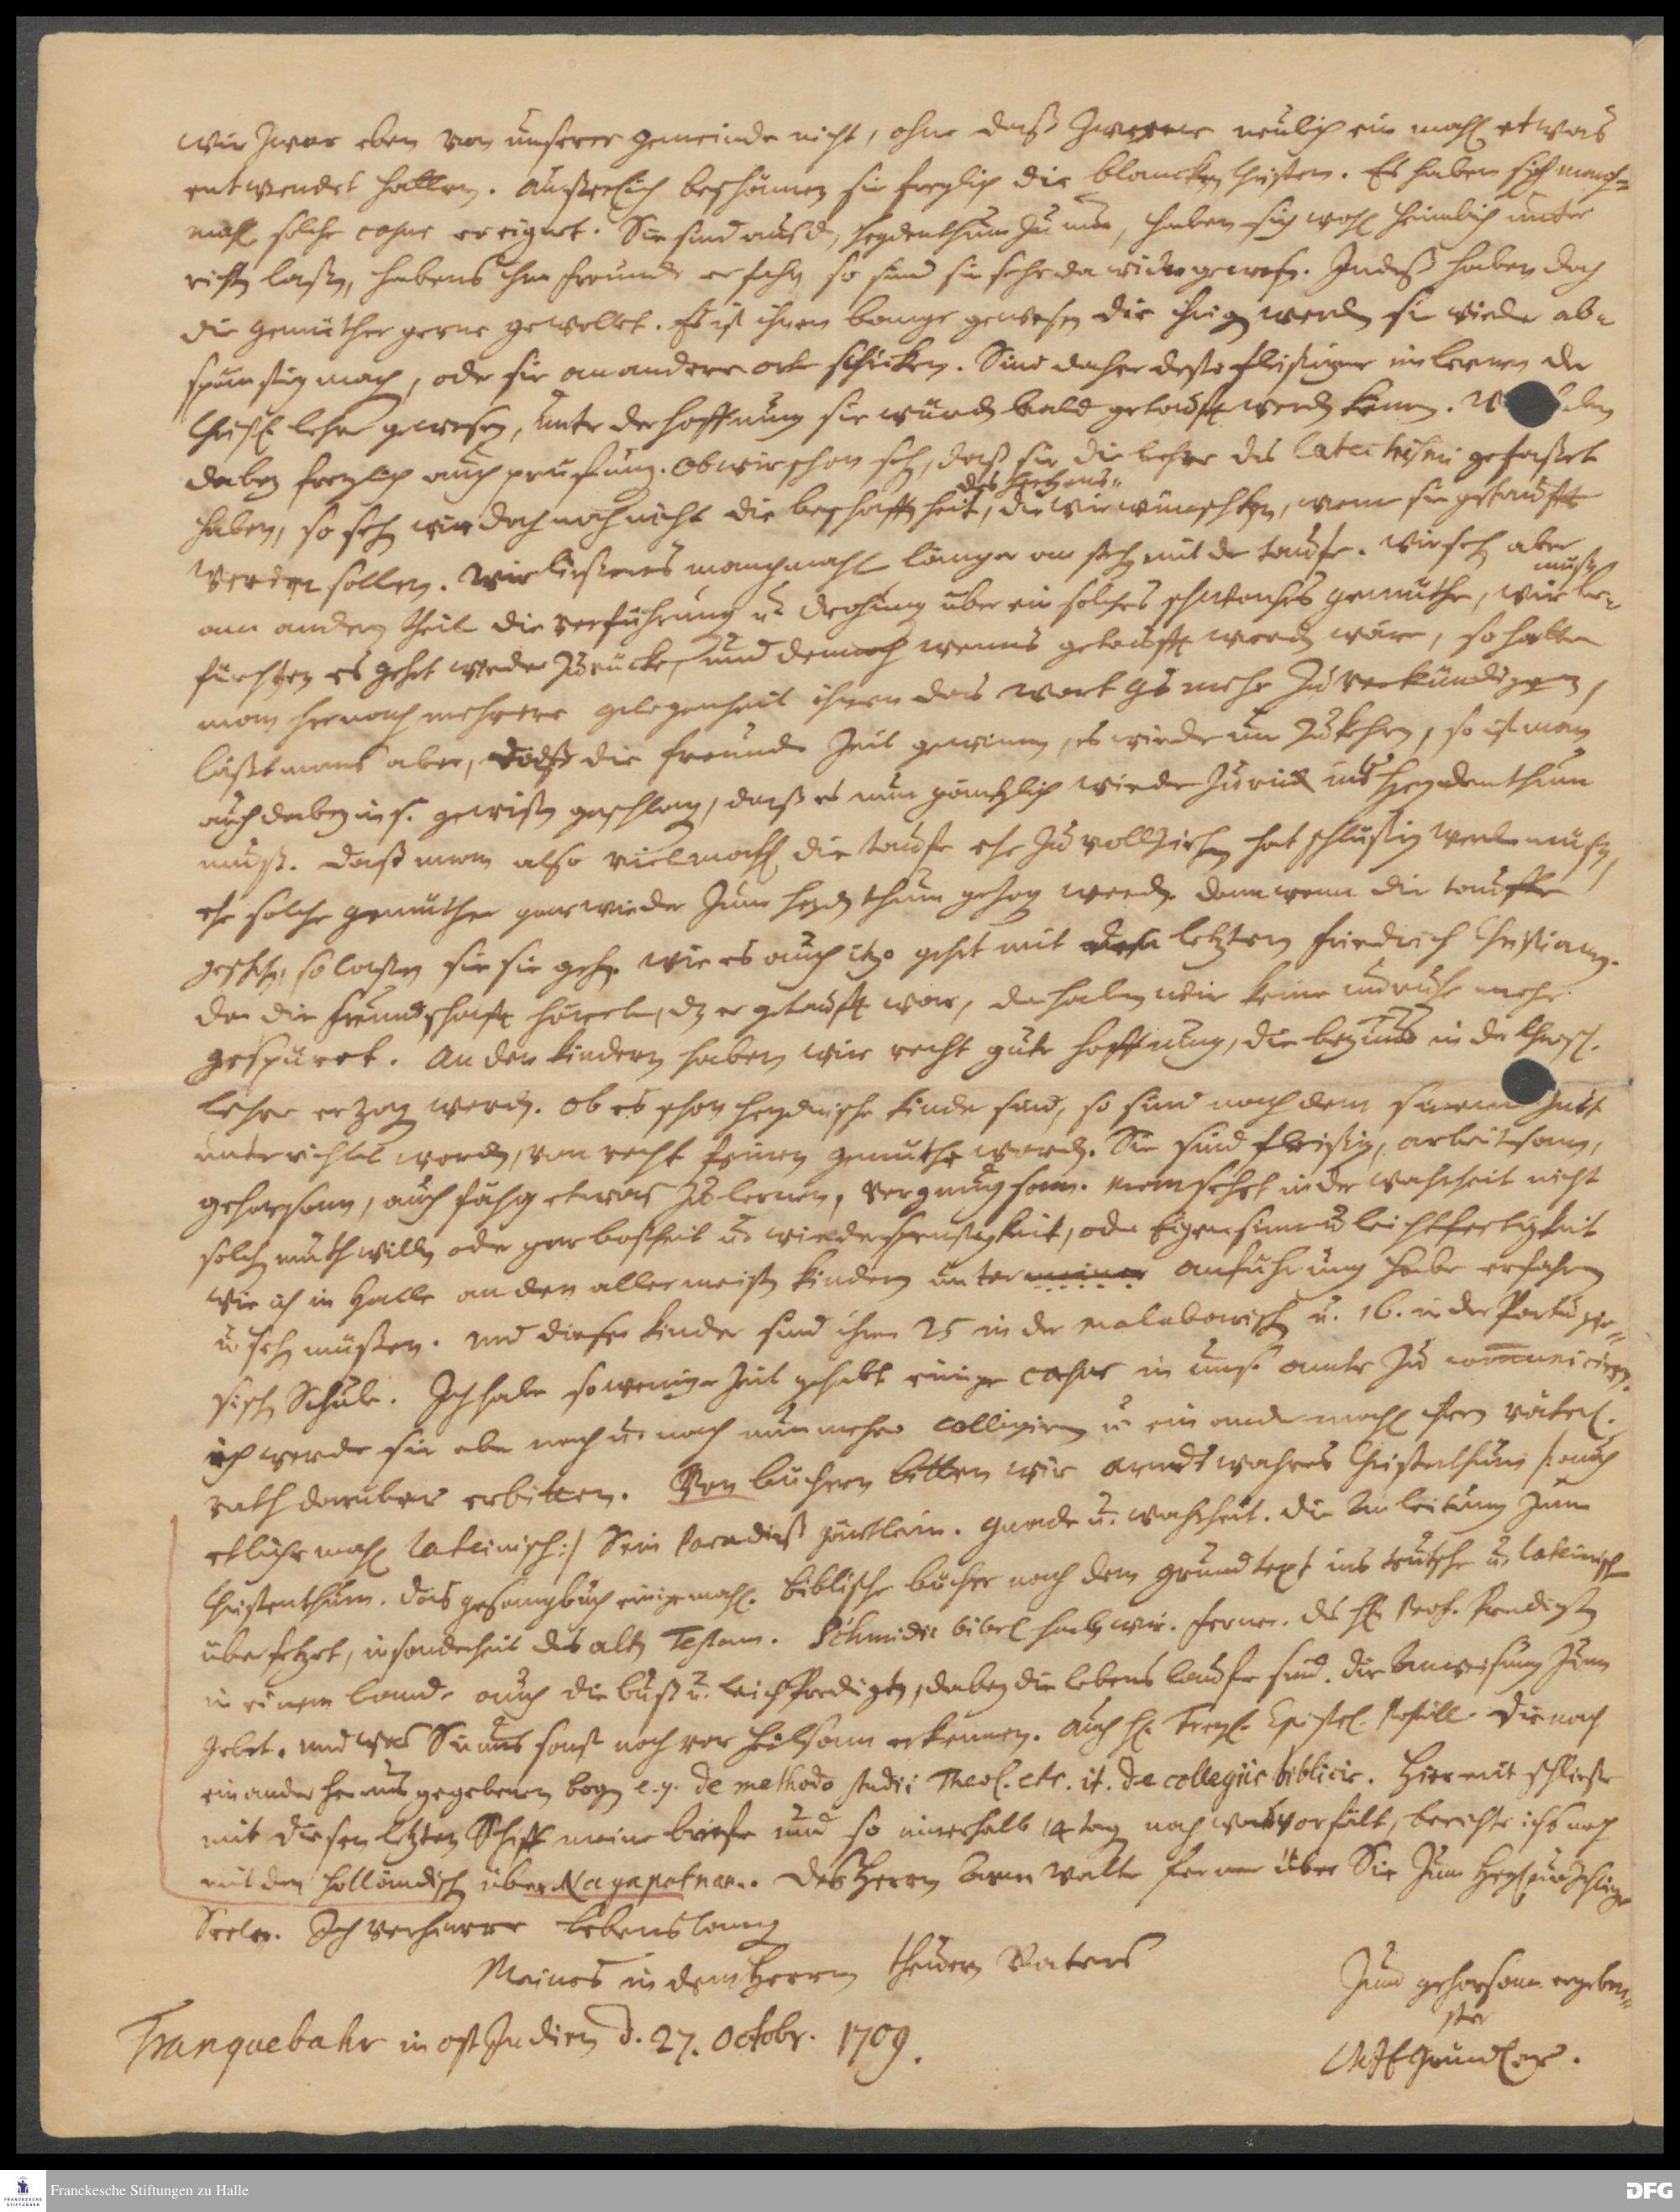 wir zwar eben von unserer gemeinde nicht, ohne daß zweene neulich ein mahl etwas
entwendet hatten. Außerlich beschämen sie freylich die blancken Christen. Es haben sich manch-
mahl solche casus ereignet. Sie sind aus d. heydenthum zu uns, haben sich wohl heimlich unter
richten laßen, habens ihre freunde erfahren so sind sie sehr dawieder gewesen. Indeß haben doch
die gemüther gerne gewollet. Es ist ihnen bange gewesen die ihrigen werden sie wieder ab-
spünstig machen, oder sie an andere orte schicken. Sind daher desto fleißiger im lernen der
Christl. lehre gewesen, unter der hoffnung sie würden bald getaufft werden können.
dabey freylich auch prüfung. Ob wir schon sehen, daß sie die lehre des Catechismi gefaßet
haben, so sehen wir doch noch nicht die beschaffenheit des Hertzens, die wir wünschten, wenn sie getaufft
werden sollen. Wir ließen es manchmahl länger anstehen mit der taufe. Wir sehen aber
am andern theil die verführung u. drohung über ein solches schwaches gemüthe, wir müßen be-
fürchten es gehet wieder zurücke, und dennoch wenns getaufft worden wäre, so hätte
man hernach mehrere gelegenheit ihnen das wort Gs mehr zu verkündigen,
läßt mans aber, daß die freunde zeit gewinnen, es wieder um zukehren, so ist man
auch dabey in s. gewißen geschlagen, daß es nun gäntzlich wieder zurück ins Heydenthum
muß. Daß man also vielmahl die taufe ehe zu vollziehen hat schlüßig werden müßen,
ehe solche gemüther gar wieder zum heydenthum gehen werden. denn wenn die tauffe
geschehen, so laßen sie sie gehen. wie es auch itzo gehet mit dem letztern Friedrich Christian.
da die freundschafft hörete, dz er getaufft war, da haben wir keine unruhe mehr
gespüret. An den kindern haben wir recht gute hoffnung, die bey uns in der Christl.
lehre erzogen werden. Ob es schon heydnische kinder sind, so sind nach dem sie eine zeit
unterrichtet worden, von recht feinen gemüthe worden. Sie sind fleißig, arbeitsam,
gehorsam, auch fähig etwas zu lernen, vergnügsam. Man sehet in der wahrheit nicht
solchen muthwillen oder gar boßheit u. wiederspenstigkeit, oder Eigensinn u. leichtfertigkeit
wie ich in Halle an den allermeisten kindern unter meiner anführung habe erfahren
u. sehen müßen. Und dieser kinder sind ihrer 25 in der malabarischen u. 16. in der Portugie-
sischen Schule. Ich habe so wenige zeit gehabt einige casus in uns. amte zu communiciren.
ich werde sie aber nach u. nach nunmehro colligiren u. ein ander mahl ihren väterl.
rath darüber erbitten. Von büchern bitten wir Arndts wahres Christenthum /: auch
etliche mahl lateinisch :/ Sein Paradieß gärtlein. Gnade u. wahrheit. Die Anleitung zum
Christenthum. Das gesangbuch einige mahl. Biblische bücher nach dem grundtext ins teutsche u. lateinisch
übersetzet, insonderheit des alten Testam. Schmidii bibel haben wir. ferner. des H. Prof. Predigten
in einem bande auch die buß u. leichpredigten, dabey die lebens läufe sind. die Anweisung zum
gebet. und was Sie uns sonst noch vor heilsam erkennen. Auch H. Freyl. Epistel. Postill. Die nach
einander heraus gegebenen bogen e.g. de methodo studii Theol. etc. it. de collegiis biblicis. Hiermit schließe
mit diesen letzten Schiff meine briefe und so innerhalb 14 tagen noch was vorfält, berichte ichs noch
mit den holländischen über Nagapatnam. Des Herrn Arm walte ferner über Sie zum Heyl
Seelen. Ich verharre lebenslang
Meines in dem Herrn theuren Vaters
Zum gehorsam ergeben-
ster
Tranquebahr in ost Indien d. 27. Octobr. 1709.
JE Gründler.
Franckesche Stiftungen zu Halle
FRANCKESCHE STIFTUNGEN
DFG